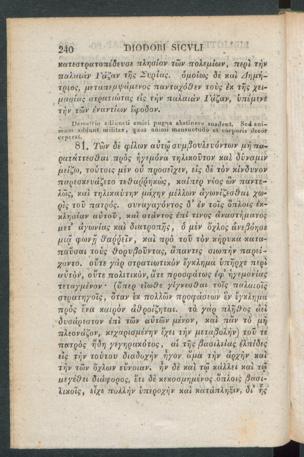 240 DIODORI SICVLI
κατεστρατοπέδευσε πλησίον τῶν πολεμίων, περὶ τὴν
παλαιὰν Γάζαν τῆς Συρίας. ὁμοίως δὲ καὶ Δημή-
τριος, μεταπεμψάμενος πανταχόθεν τοὺς ἐκ τῆς χει-
μασίας στρατιώτας εἰς τὴν παλαιὰν Γάζαν, ὑπέμενε
τὴν τῶν ἐναντίων ἔφοδον.
Demetrio adlucenti amici pugna abstinere suadent. Sed ani-
mum addunt milites, quos animi mansuetudo et corporis decor
ceperat.
81. Τῶν δὲ φίλων αὐτῷ συμβουλευόντων μὴ πα-
ρατάττεσθαι πρὸς ἡγεμόνα τηλικοῦτον καὶ δύναμιν
μείζω, τούτοις μὲν οὐ προσεῖχεν, εἰς δὲ τὸν κίνδυνον
παρεσκευάζετο τεθαῤῥηκὼς, καίπερ νέος ὢν παντε-
λῶς, καὶ τηλικαύτην μάχην μέλλων ἀγωνίζεσθαι χω-
ρὶς τοῦ πατρός. συναγαγόντος δ' ἐν τοῖς ὅπλοις ἐκ-
κλησίαν αὐτοῦ, καὶ στάντος ἐπί τινος ἀναστήματος
μετ' ἀγωνίας καὶ διατροπῆς, ὁ μὲν ὄχλος ἀνεβόησε
μιᾷ φωνῇ θαῤῥεῖν, καὶ πρὸ τοῦ τὸν κήρυκα κατα-
παῦσαι τοὺς θορυβοῦντας, ἅπαντες σιωπὴν παρεί-
χοντο. οὔτε γὰρ στρατιωτικὸν ἔγκλημα ὑπῆρχε περὶ
αὐτὸν, οὔτε πολιτικὸν, ἅτε προσφάτως ἐφ' ἡγεμονίας
τεταγμένον· (ὅπερ εἴωθε γίγνεσθαι τοῖς παλαιοῖς
στρατηγοῖς, ὅταν ἐκ πολλῶν προφάσεων ἓν ἔγκλημα
πρὸς ἕνα καιρὸν ἀθροίζηται. τὸ γὰρ πλῆθος ἀεὶ
δυσάρεστον ἐπὶ τῶν αὐτῶν μένον, καὶ πᾶν τὸ μὴ
πλεονάζον, κεχαρισμένην ἔχει τὴν μεταβολὴν) τοῦ τε
πατρὸς ἤδη γεγηρακότος, αἱ τῆς βασιλείας ἐλπίδες
εἰς τὴν τούτου διαδοχὴν ἦγον ἅμα τὴν ἀρχὴν καὶ
τὴν τῶν ὄχλων εὔνοιαν. ἦν δὲ καὶ τῷ κάλλει καὶ τῷ
μεγέθει διάφορος, ἔτι δὲ κεκοσμημένος ὅπλοις βασι-
λικοῖς, εἶχε πολλὴν ὑπεροχὴν καὶ κατάπληξιν, δι' ἧς